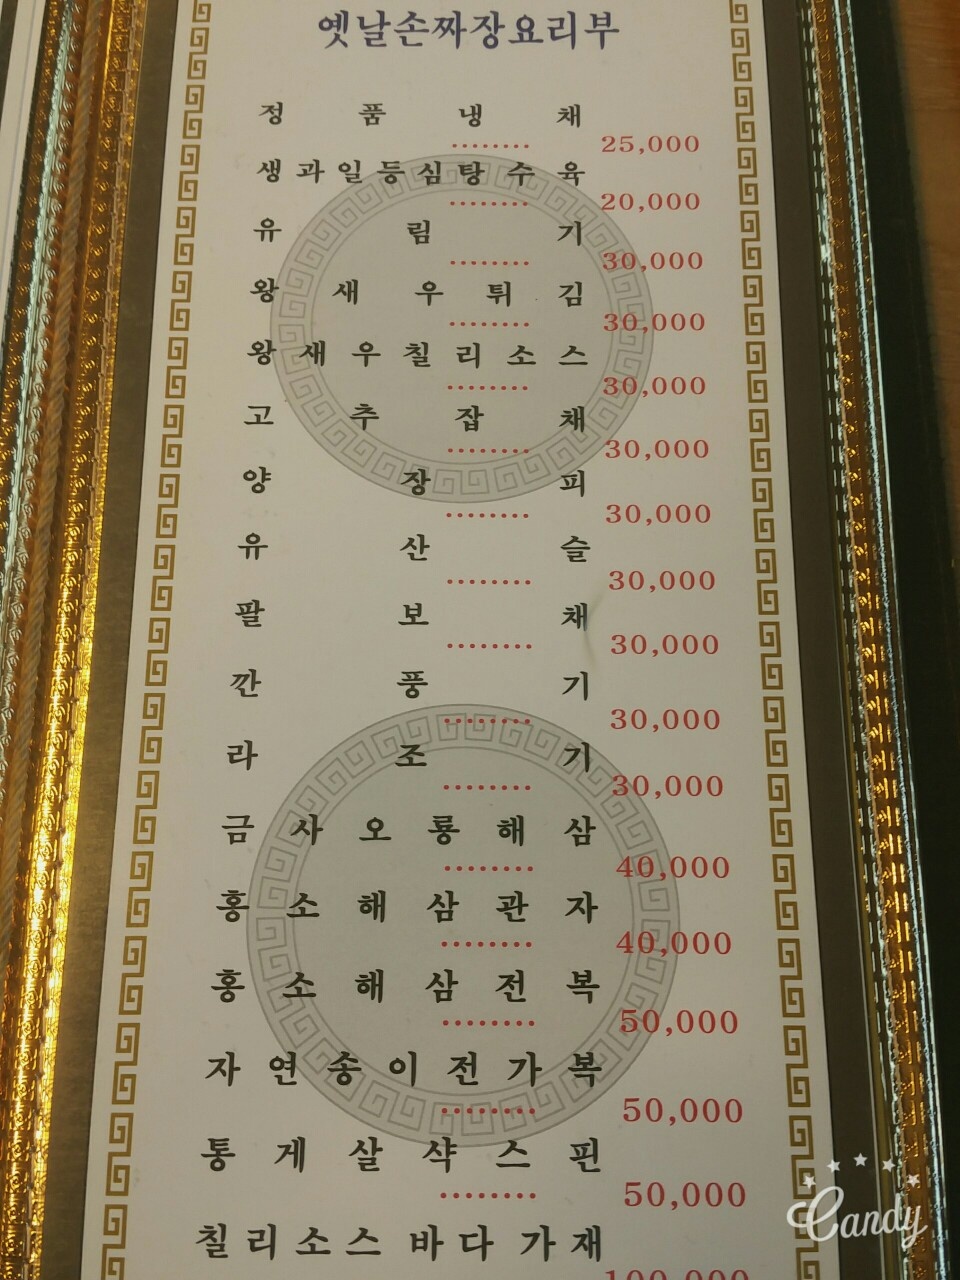 옛날손짜장요리부
정품냉채 ........ 25,000
생과일등심탕수육 ........ 20,000
유림기 ........ 30,000
왕새우튀김 ........ 30,000
왕새우칠리소스 ........ 30,000
고추잡채 ........ 30,000
양장피 ........ 30,000
유산슬 ........ 30,000
팔보채 ........ 30,000
깐풍기 ........ 30,000
라조기 ........ 30,000
금사오룡해삼 ........ 40,000
홍소해삼관자 ........ 40,000
홍소해삼전복 ........ 50,000
자연송이전가복 ........ 50,000
통게살샥스핀 ........ 50,000
칠리소스 바다 가재
100,000
Candy